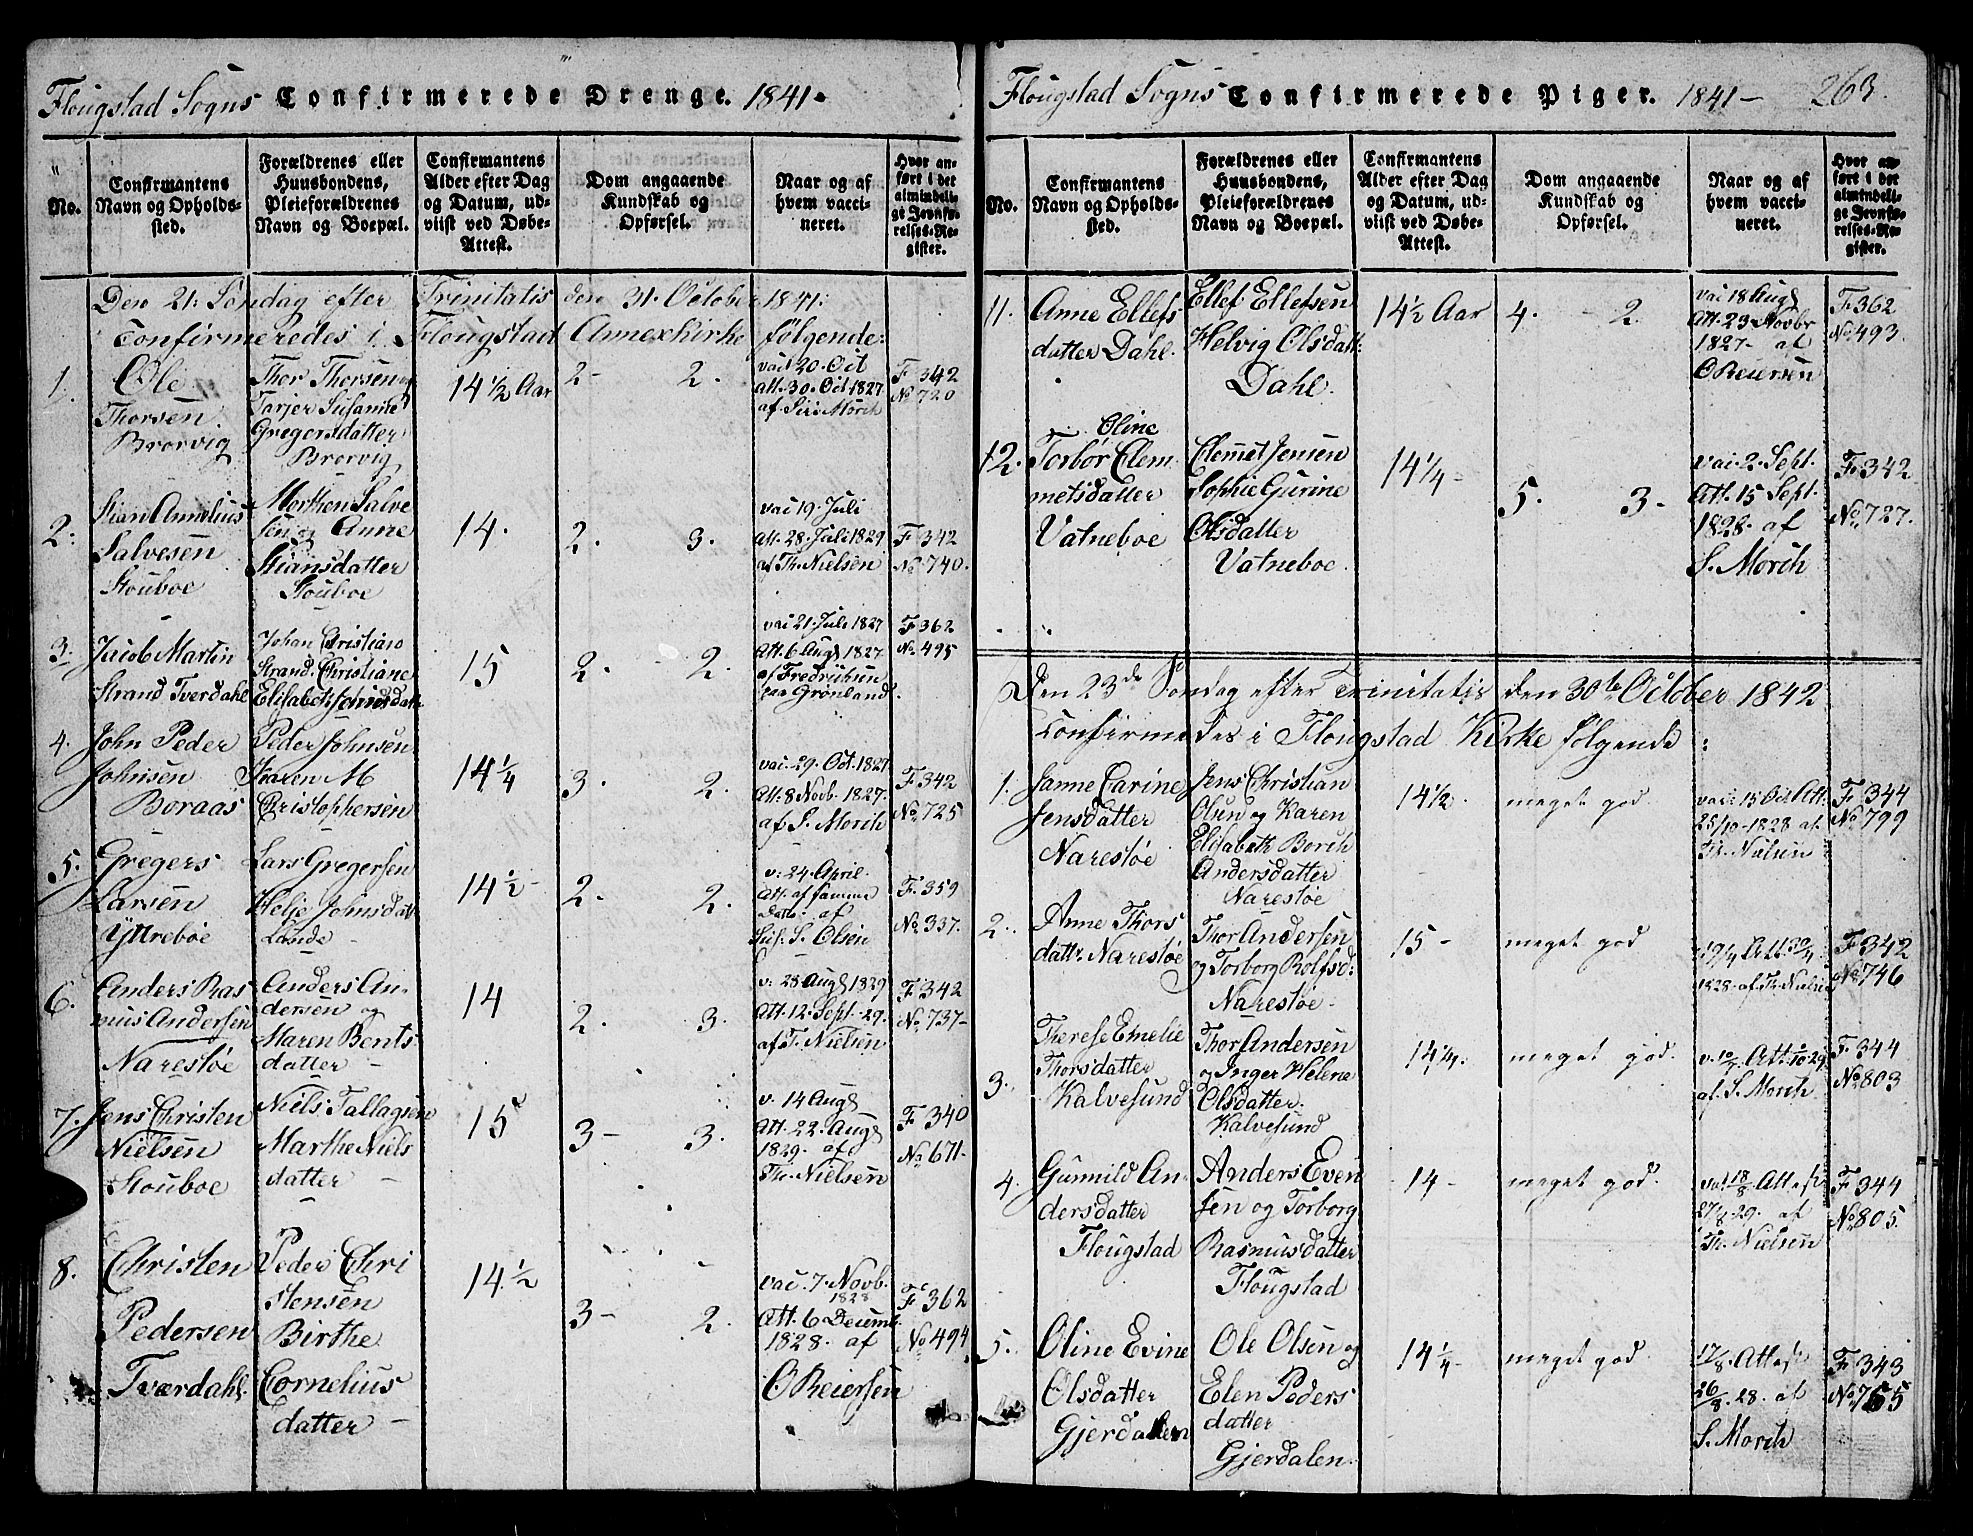 Flougstad Sogns Confirmerede Drenge. 1841.
No.
Confirmantens Navn og Opholdssted.
Forældrenes eller Huusbondens, Pleieforældrenes Navn og Boepæl.
Confirmantens Alder efter Dag og Datum, udviist ved Døbe-Attest.
Dom angaaende Kundskab og Opførsel.
Naar og af hvem vaccineret.
Hvor anført i det almindelige Jevnførelses-Register.
Den 21. Søndag efter Trinitatis den 31. October 1841.
Confirmeredes i Flougstad Annexkirke følgende:
1.
Ole
Thorsen
Brorvig
Thor Thorsen og
Tarjer Susanne
Gregersdatter
Brorvig
14 1/2 Aar
2 - 2.
vac 20. Oct
Att. 30. Oct 1827
af Siri Mörch
F 342
No 720
2.
Stian
Salvesen
Stouboe
Morthen Salve
sen og Anne
Stiansdatter
Stouboe
14.
2. 3.
vac 19. Juli
Att. 28. Juli 1829
af Th. Nielsen
F 342
No 740.
3.
Jacob Martin
Strand Tverdahl
Johan Christian
Strand. Christiane
Elisabeth
15
2. - 2.
vac 21. Juli 1827
Att. 6 Augs 1827
paa Grönland.
F 362
No 495
4.
John Peder
Johnsen
Boraas
Peder Johnsen
Karen M
Christophersen
14 1/4
3. 2.
vac. 29. Oct. 1827
Att. 8 Novb. 1827.
af S. Morch
F 342
No 725
5.
Gregers
Larsen
Yttreböe
Lars Gregersen
Helje Johnsdatt
Lande
14 1/2 -
2. 2.
v: 24. April.
Att. af samme
Dato. af
S. Olsen
F. 359
No 337.
6.
Anders Ras
mus Andersen
Narestöe
Anders An-
dersen og
Maren Bents
datter -
14
2. 3.
v: 28 Augs 1829
Att. 12. Sept. 29.
af T. Nielsen
F. 342
No 737 -
7.
Jens Christen
Nielsen
Stouboe
Niels Tallagsen
Marthe Niels
datter -
15
3 - 3.
v. 14 Augs
Att. 22. Augs
1829. af
Th. Nielsen
F 340
No 671.
8.
Christen
Pedersen
Tværdahl.
Peder Chri
stensen
Birthe
Cornelius
datter -
14 1/2
3 - 2.
vac. 7. Novb.
1828
Att. 6 Decemb.
1828. af
O Reiersen
F 362
No 494
Flougstad Sogns Confirmerede Piger. 1841 - 263.
No.
Confirmantens Navn og Opholdssted.
Forældrenes eller Huusbondens, Pleieforældrenes Navn og Boepæl.
Confirmantens Alder efter Dag og Datum, udviist ved Døbe-Attest.
Dom angaaende Kundskab og Opførsel.
Naar og af hvem vaccineret.
Hvor anført i det almindelige Jevnførelses-Register.
11.
Anne Ellefs
datter Dahl.
Ellef Ellefsen
Helvig Olsdatt:
Dahl.
14 1/2 Aar
4. - 2.
vac 18 Augs
Att. 23 Novbr
1827 - af
O Reiersen
F 362
No 493.
12.
Oline
Torbör Clem
metsdatter
Vatneboe
Clemet Jensen
Sophie Gurine
Olsdatter
Vatneboe.
14 1/4 -
5. 3 -
vac. 2. Sept.
Att. 15 Sept.
1828. af
S. Morch
F. 342
No 727.
Den 23de Søndag efter Trinitatis den 30te October 1842
Confirmedes i Flougstad Kirke følgende:
1.
Janne Carine
Jensdatter
Narestöe
Jens Christian
Olsen og Karen
Elisabeth Borch
Andersdatter
Narestöe
14 1/2.
meget god
vac: 15 Oct. Att.
25/10 - 1828 af
Th. Nielsen
F. 344
No 799
2.
Anne Thors
datt: Narestöe
Thor Andersen
og Torborg Rolfsd:
Narestöe -
15 -
meget god
19/4 Att. 30/4
1828. af Th. Nielsen
F. 342
No 746
3.
Therese Emelie
Thorsdatter
Kalvesund
Thor Andersen
og Inger Helene
Olsdatter.
Kalvesund
14 1/4.
meget god.
af. S. Morch
F. 344
No 803
4.
Gunnild An-
dersdatter
Flougstad
Anders Even
sen og Torborg
Rasmusdatter
Flougstad
14 -
meget god.
vac. 18/8 Attest
27/8. 29. af
Th. Nielsen
F. 344
No 805.
5.
Oline Evine
Olsdatter
Gjerdalen
Ole Olsen og
Elen Peders
datter
Gjerdalen.
14 1/4 -
meget god
17/8. Attest
26/8. 28. af
S. Morch
F 343
No 765